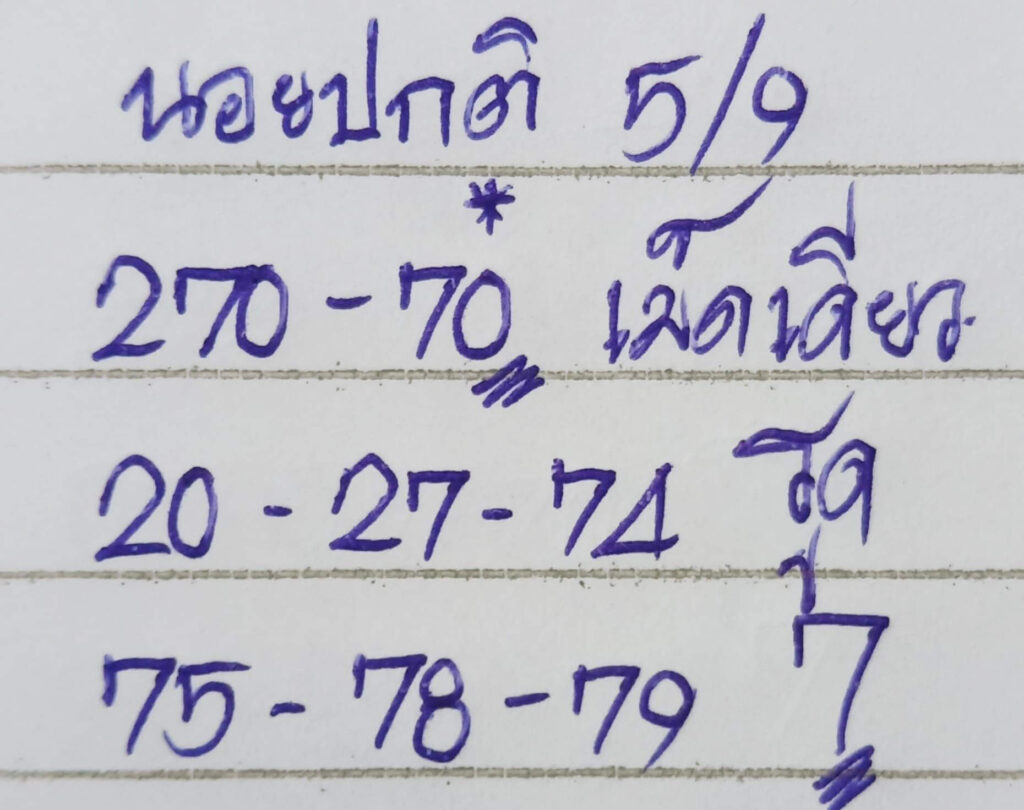 นอยปกติ 5/9
*
270-70 เม็ดเดียว
20-27-74 รูด
75-78-79 7